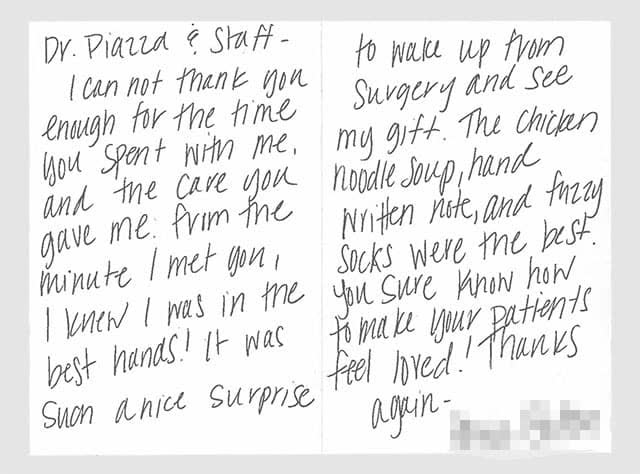 Dr. Piazza & Staff -
I can not thank you
enough for the time
you spent with me,
and the care you
gave me. From the
minute I met you,
I knew I was in the
best hands! It was
such a nice surprise
to wake up from
surgery and see
my gift. The chicken
noodle soup, hand
written note, and fuzzy
socks were the best.
You sure know how
to make your patients
feel loved! Thanks
again -